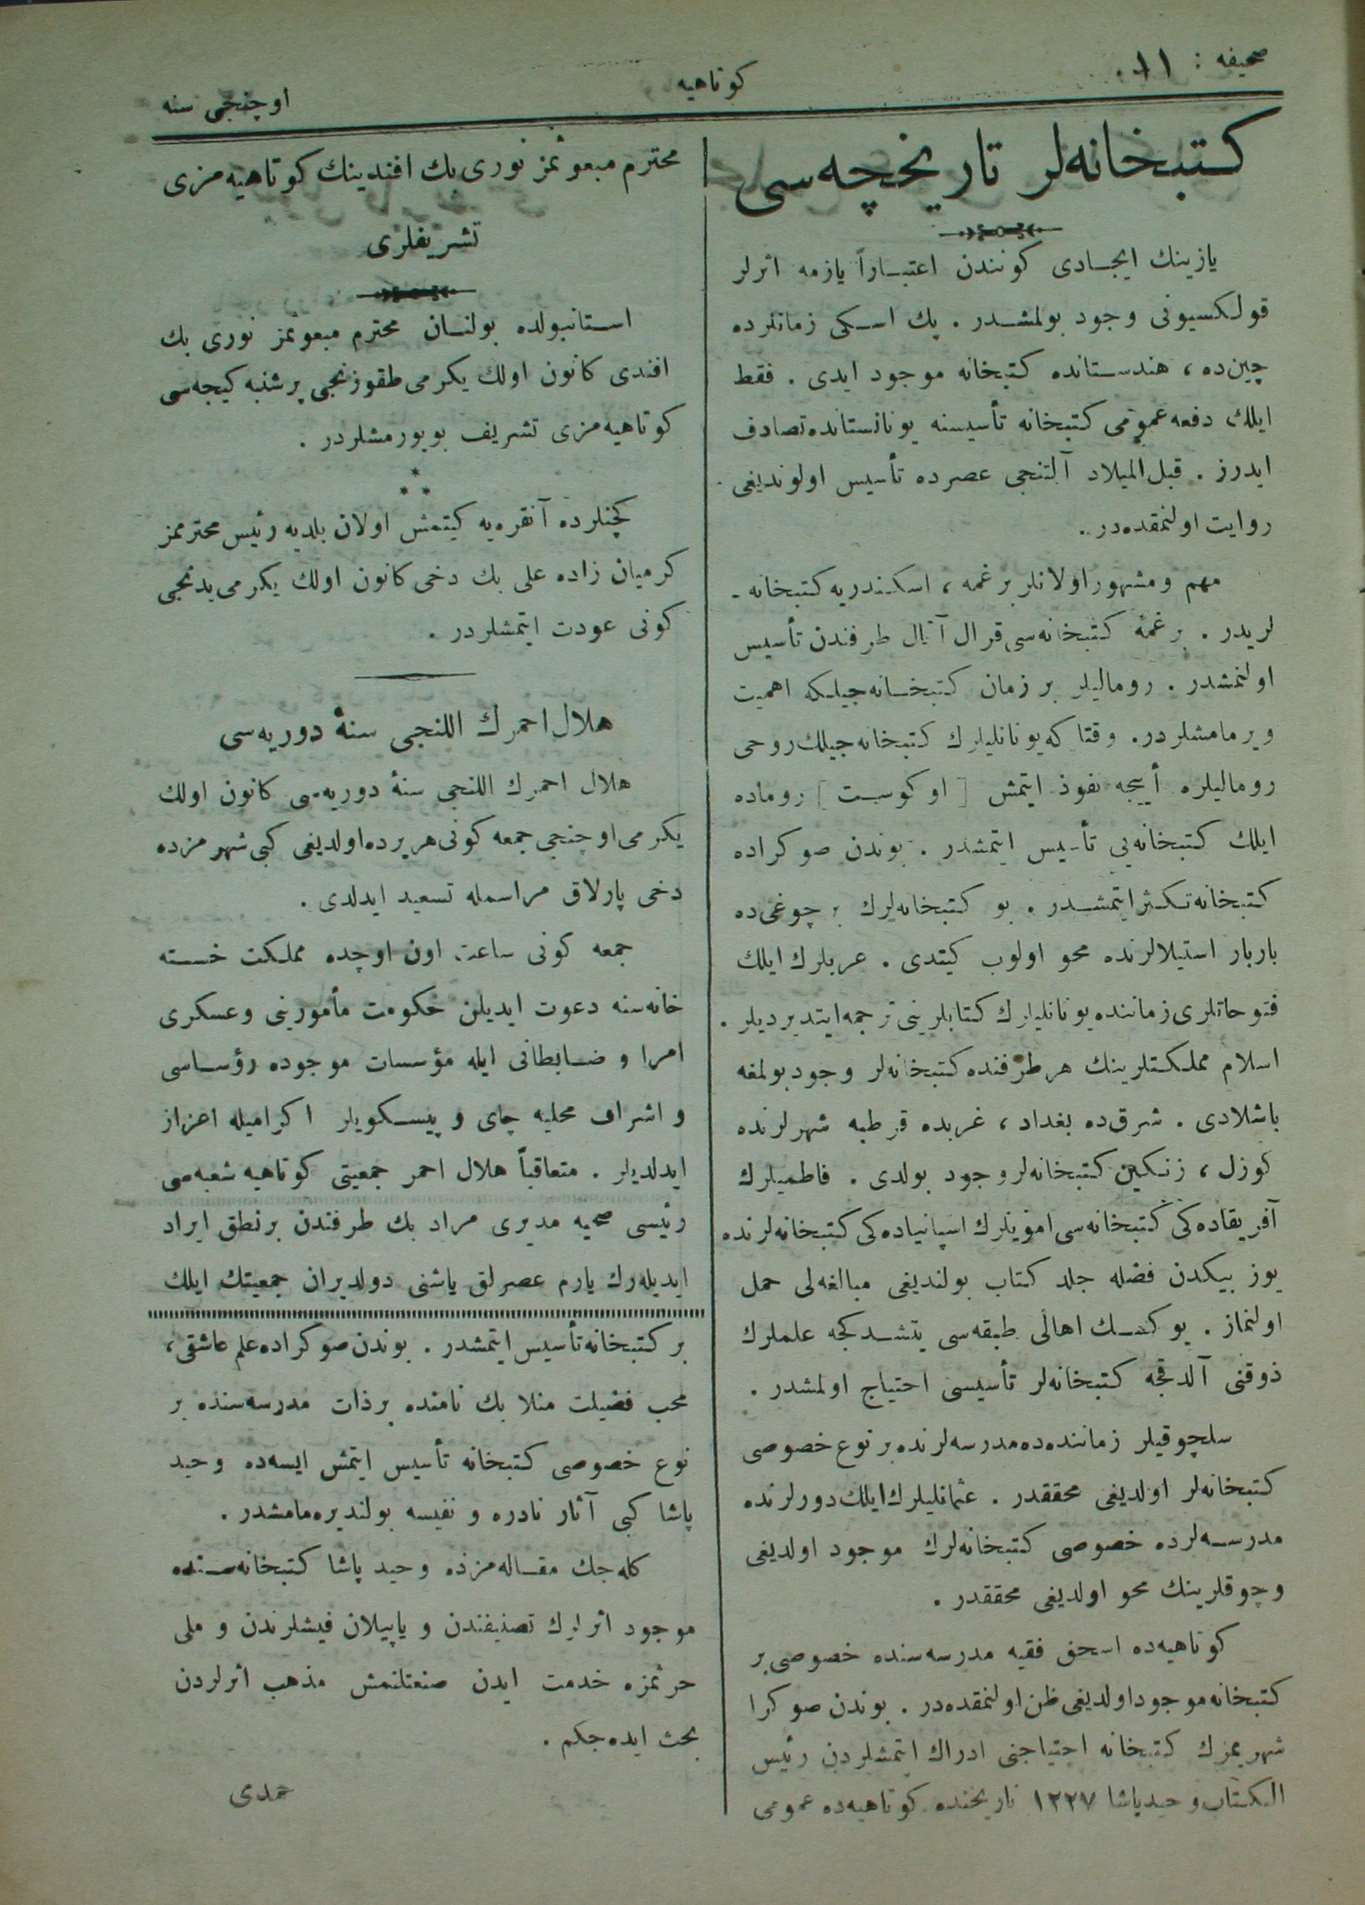 صحیفه :
كوتاهیه
اوچنجی سنه
كتبخانه‌لر تاریخچه‌سی
یازینك ایجادی كونندن اعتباراً یازمه اثرلر
قولكسیونی وجود بولمشدر . پك اسكی زمانلرده
چین‌ده ، هندستانده كتبخانه موجود ایدی . فقط
ایلك دفعه عمومی كتبخانه تأسیسنه یونانستانده تصادف
ایدرز . قبل المیلاد آلتنجی عصرده تأسیس اولوندیغی
روایت اولنمقده‌در .
مهم و مشهور اولانلر برغمه ، اسكندریه كتبخانه -
لریدر . برغمه كتبخانه‌سی قرال آتال طرفندن تأسیس
اولنمشدر . رومالیلر بر زمان كتبخانه‌جیلكه اهمیت
ویرمامشلردر. وقتا كه یونانلیلرك كتبخانه‌جیلك روحی
رومالیلره أییجه نفوذ ایتمش [ اوكوست ] روماده
ایلك كتبخانه‌یی تأسیس ایتمشدر . بوندن صوكراده
كتبخانه تكثر ایتمشدر . بو كتبخانه‌لرك بر چوغی‌ده
باربار استیلالرنده محو اولوب كیتدی . عربلرك ایلك
فتوحاتلری زماننده یونانلیلرك كتابلرینی ترجمه ایتدیردیلر .
اسلام مملكتلرینك هر طرفنده كتبخانه‌لر وجود بولمغه
باشلادی . شرق‌ده بغداد ، غربده قرطبه شهرلرنده
كوزل ، زنكین كتبخانه‌لر وجود بولدی . فاطمیلرك
آفریقاده‌كی كتبخانه‌سی امویلرك اسپانیاده‌كی كتبخانه‌لرنده
یوز بیكدن فضله جلد كتاب بولندیغی مبالغه‌لی حمل
اولنماز . یوكسك اهالی طبقه‌سی یتشدكجه علملرك
ذوقنی آلدقجه كتبخانه‌لر تأسیسی احتیاج اولمشدر .
سلچوقیلر زماننده‌ده مدرسه‌لرنده بر نوع خصوصی
كتبخانه‌لر اولدیغی محققدر . عثمانلیلرك ایلك دورلرنده
مدرسه‌لرده خصوصی كتبخانه‌لرك موجود اولدیغی
و چوقلرینك محو اولدیغی محققدر .
كوتاهیه‌ده اسحق فقیه مدرسه‌سنده خصوصی بر
كتبخانه موجود اولدیغی ظن اولنمقده‌در . بوندن صوكرا
شهریمزك كتبخانه احتیاجنی ادراك ایتمشلردن رئیس
الكتاب وحید پاشا ١٢٢٧ تاریخنده كوتاهیه‌ده عمومی
محترم مبعوثمز نوری بك افندینك كوتاهیه‌مزی
تشریفلری
استانبولده بولنان محترم مبعوثمز نوری بك
افندی كانون اولك یكرمی طقوزنجی پرشنبه كیجه‌سی
كوتاهیه‌مزی تشریف بویورمشلردر .
* * *
كچنلرده آنقره‌یه كیتمش اولان بلدیه رئیس محترممز
كرمیان زاده علی بك دخی كانون اولك یكرمی یدنجی
كونی عودت ایتمشلردر .
هلال احمرك اللنجی سنهٔ دوریه‌سی
هلال احمرك اللنجی سنهٔ دوریه‌سی كانون اولك
یكرمی اوچنجی جمعه كونی هریرده اولدیغی كبی شهرمزده
دخی پارلاق مراسمله تسعید ایدلدی .
جمعه كونی ساعت اون اوچده مملكت خسته
خانه‌سنه دعوت ایدیلن حكومت مأمورینی وعسكری
امرا و ضابطانی ایله مؤسسات موجوده رؤساسی
و اشراف محلیه چای و پیسكویلر اكرامیله اعزاز
ایدلدیلر . متعاقباً هلال احمر جمعیتی كوتاهیه شعبه‌سی
رئیسی صحیه مدیری مراد بك طرفندن برنطق ایراد
ایدیله‌رك یارم عصرلق یاشنی دولدیران جمعیتك ایلك
بر كتبخانه تأسیس ایتمشدر . بوندن صوكراده علم عاشقی،
محب فضیلت منلا بك نامنده برذات مدرسه‌سنده بر
نوع خصوصی كتبخانه تأسیس ایتمش ایسه‌ده وحید
پاشا كبی آثار نادره و نفیسه بولندیره‌مامشدر .
كله‌جك مقاله‌مزده وحید پاشا كتبخانه‌سنده
موجود اثرلرك تصنیفندن و یاپیلان فیشلرندن و ملی
حرثمزه خدمت ایدن صنعتلنمش مذهب اثرلردن
بحث ایده‌جكم .
حمدی